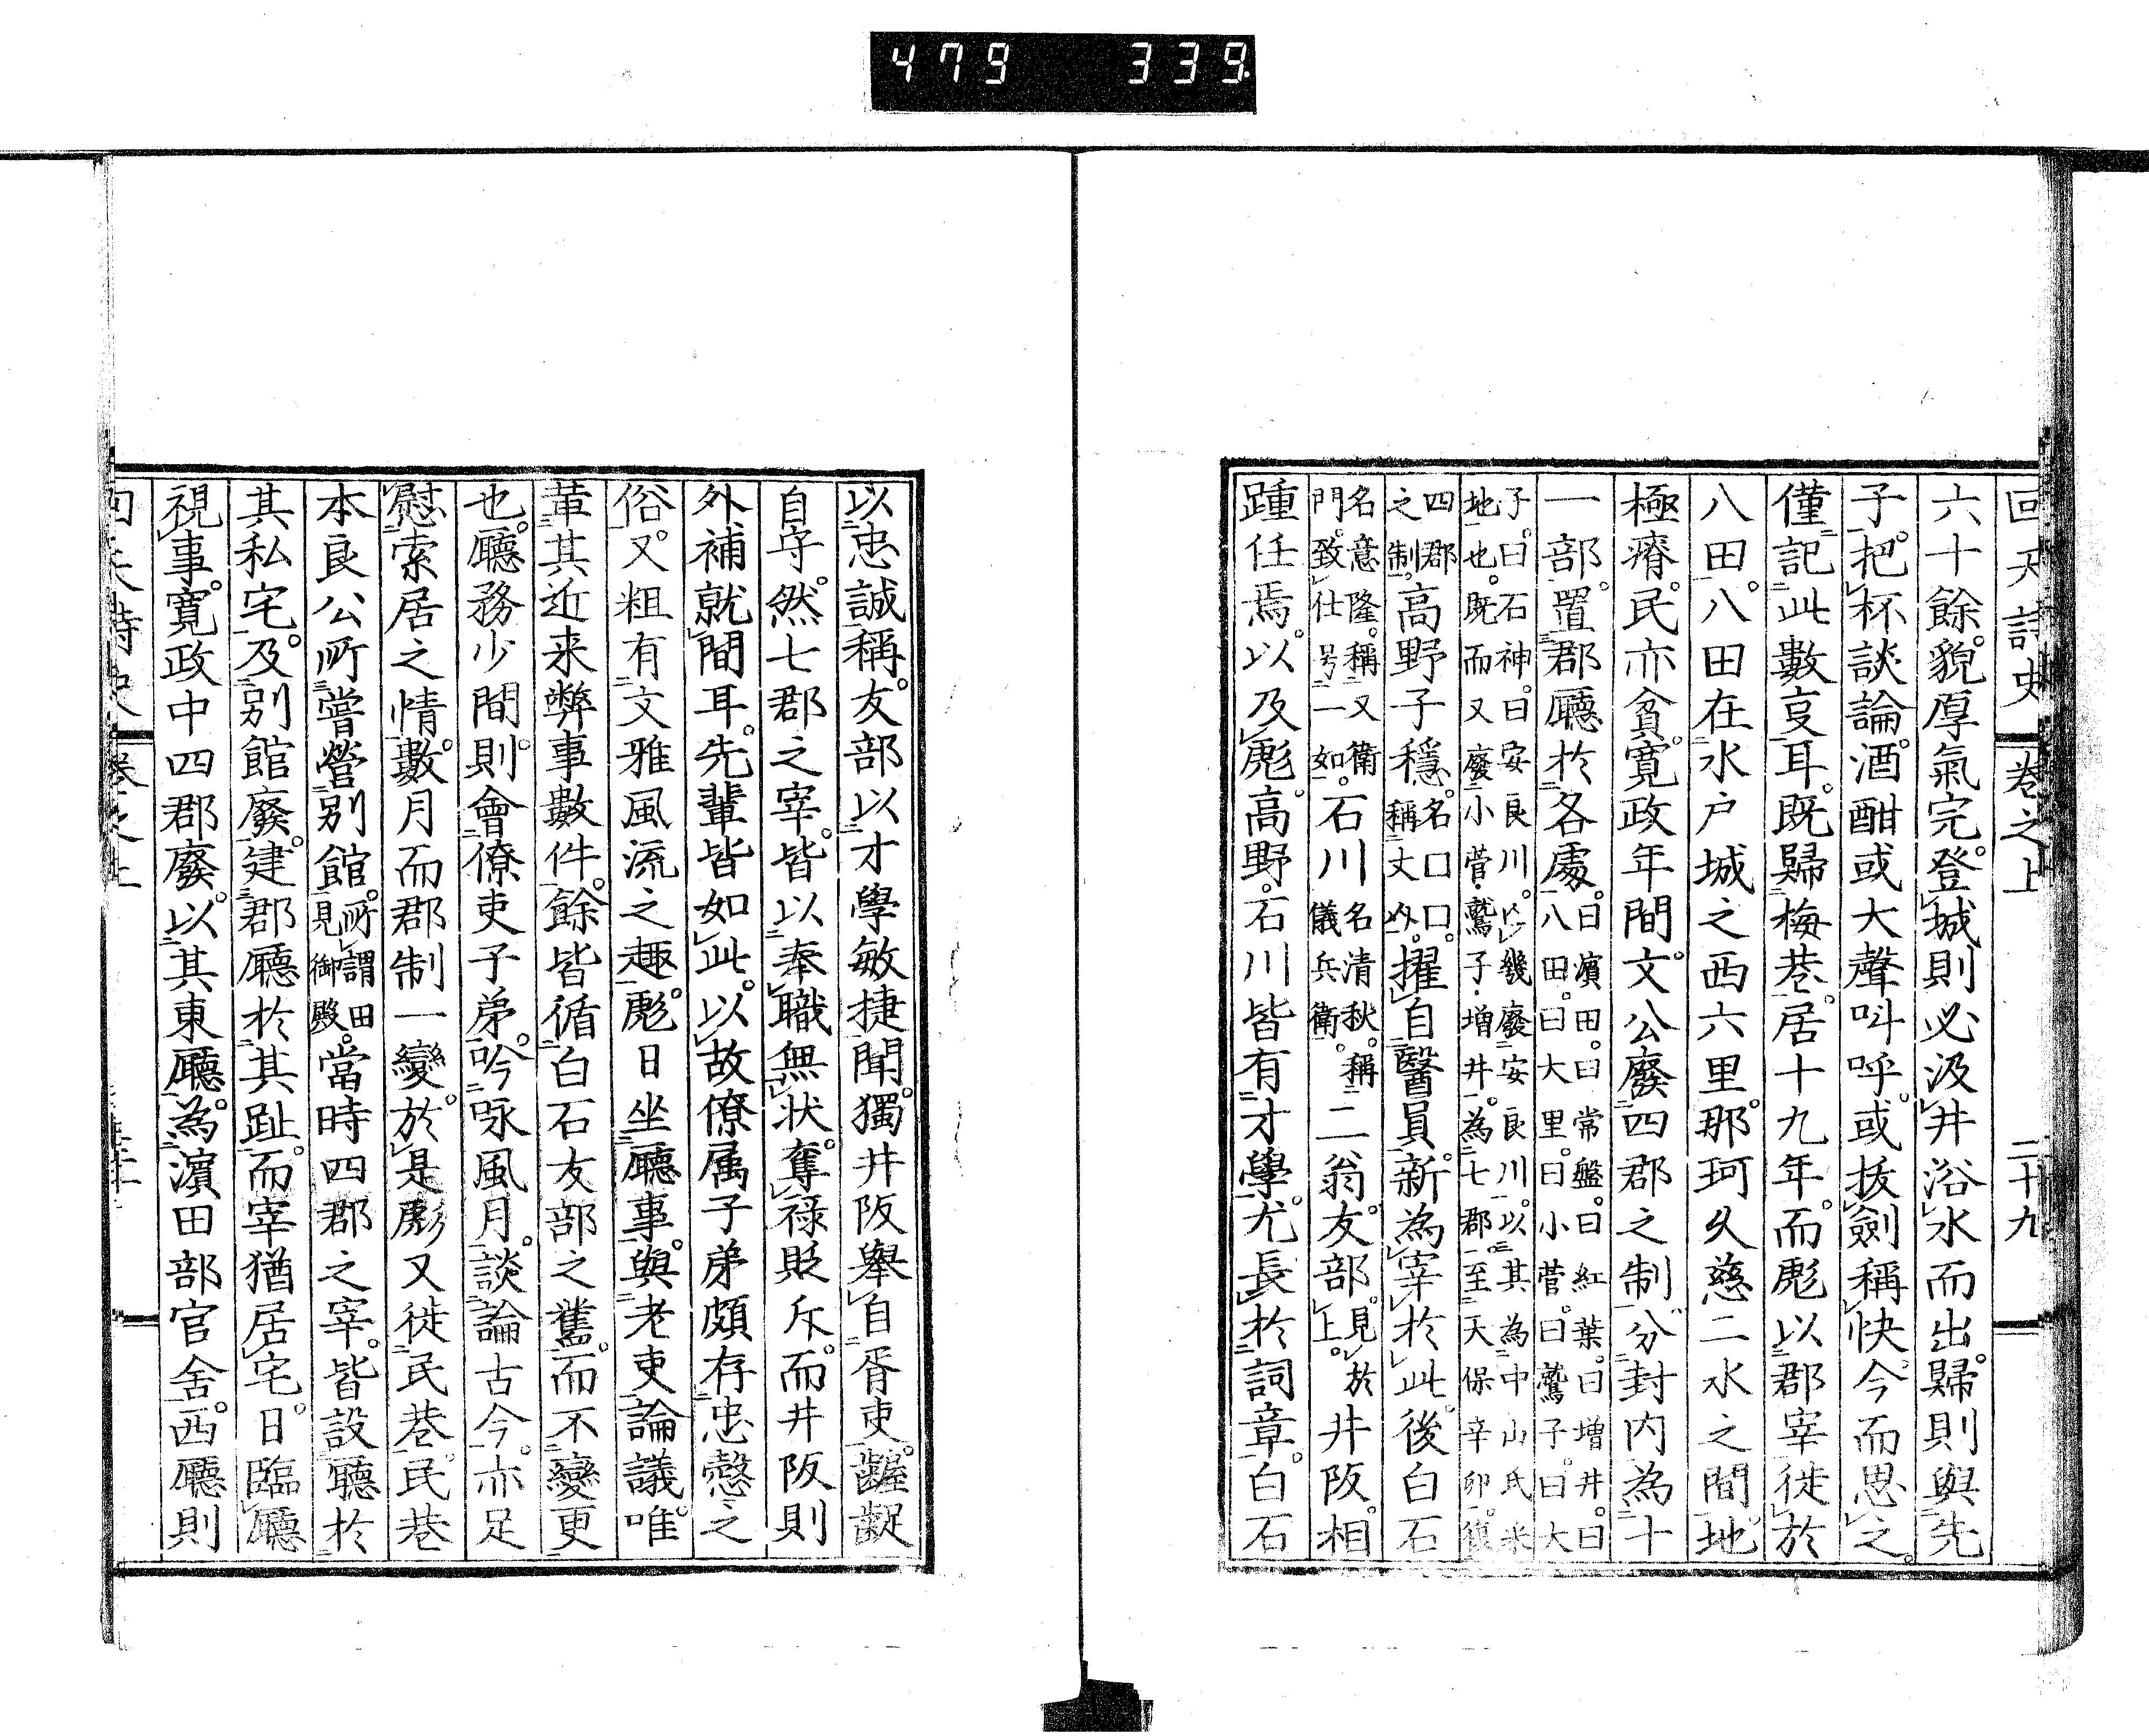 479 339
回天詩史 卷之上 二十九
六十餘。貌厚氣完。登城則必汲井浴水而出。歸則與先
子。把杯談論。酒酣或大聲叫呼。或拔劍稱快。今而思之。
僅記此數叓耳。既歸梅巷。居十九年。而彪以郡宰徙於
八田。八田在水戸城之西六里。那珂久慈二水之間。地
極瘠。民亦貧。寛政年間。文公廢四郡之制。分封内為十
一部。置郡廳於各處。曰濱田。曰常盤。曰紅葉。曰增井。曰
八田。曰大里。曰小菅。曰鷲子。曰大
子。曰石神。曰安良川。以幾廢安良川。以其為中山氏釆
地也。既而又廢小菅・鷲子・增井。為七郡。至天保辛卯。復
四郡
之制。高野子穩。名口口。
稱丈㕝。擢自醫員。新為宰於此。後白石
名意隆。稱又衛
門。致仕号一如。石川名清秋。稱
儀兵衛。二翁。友部。見於
上。井阪。相
踵任焉。以及彪。高野。石川皆有才學。尤長於詞章。白石
以忠誠稱。友部以才學敏捷聞。獨井阪舉自胥吏。齷齪
自守。然七郡之宰。皆以奉職無状。奪禄貶斥。而井阪則
外補就閒耳。先輩皆如此。以故僚属子弟頗存忠愨之
俗。又粗有文雅風流之趣。彪日坐廳事。與老吏論議。唯
革其近来弊事數件。餘皆循白石友部之舊。而不變更
也。廳務少間。則會僚吏子弟。吟咏風月。談論古今。亦足
慰索居之情。數月而郡制一變。於是彪又徙民巷。民巷
本良公所嘗營別館。所謂田
見御殿。當時四郡之宰。皆設廳於
其私宅。及別館廢。建郡廳於其趾。而宰猶居宅。日臨廳
視事。寛政中四郡廢。以其東廳。為濱田部官舍。西廳則
回天詩史 卷之上